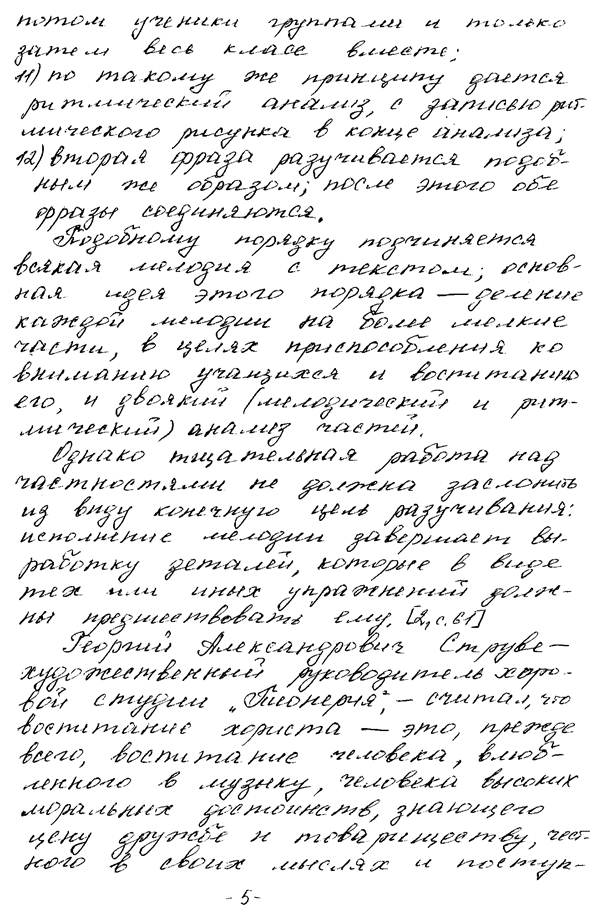 потом ученики группами и только
затем весь класс вместе;
11) по такому же принципу дается
ритмический анализ, с записью рит-
мического рисунка в конце анализа;
12) вторая фраза разучивается подоб-
ным же образом; после этого обе
фразы соединяются.
Подобному порядку подчиняется
всякая мелодия с текстом; основ-
ная идея этого порядка — деление
каждой мелодии на более мелкие
части, в целях приспособления ко
вниманию учащихся и воспитанию
его, и двоякий (мелодический и рит-
мический) анализ частей.
Однако тщательная работа над
частностями не должна заслонить
из виду конечную цель разучивания:
исполнение мелодии завершает вы-
работку деталей, которые в виде
тех или иных упражнений долж-
ны предшествовать ему. [2, с.61]
Георгий Александрович Струве —
художественный руководитель хоро-
вой студии „Пионерия", — считал, что
воспитание хориста — это, прежде
всего, воспитание человека, влюб-
ленного в музыку, человека высоких
моральных достоинств, знающего
цену дружбе и товариществу, чест-
ного в своих мыслях и поступ-
- 5 -